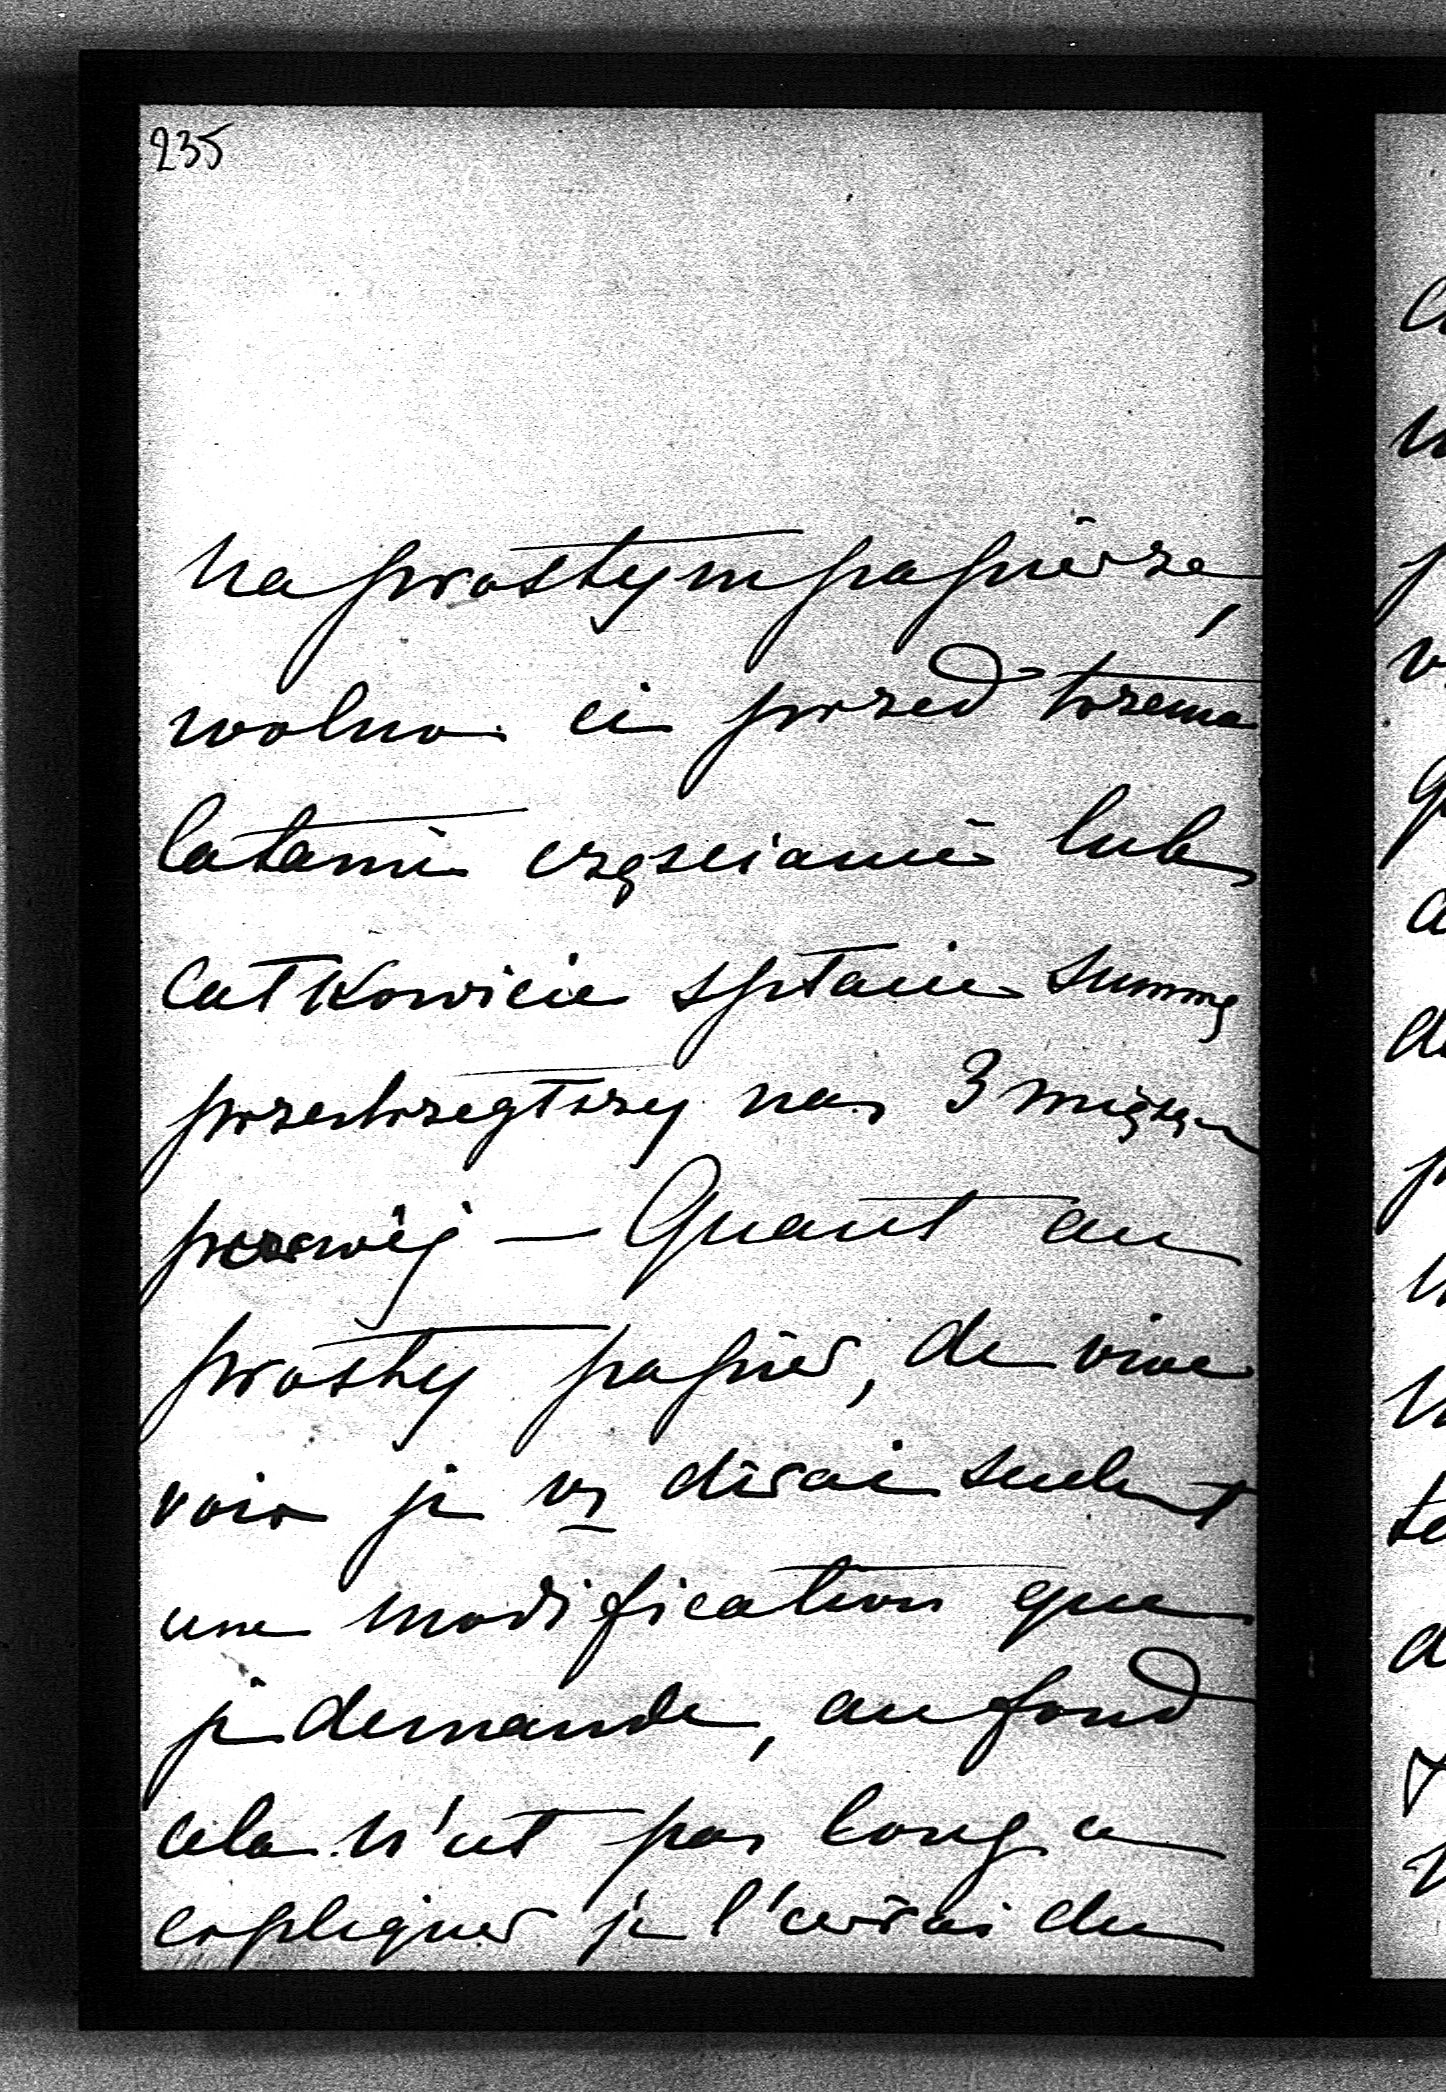 235
na prostym papierze,
wolno ci przed trzema
latami częściami lub
całkowicie spłacie summę
przestrzegłszy na 3 miesiące
pierwiéj — Quant au
prosty papier, de vive
voix je vs dirai seulemt
une modification que
je demande, au fond
cela n'est pas long a
expliquer je l'écrirai du